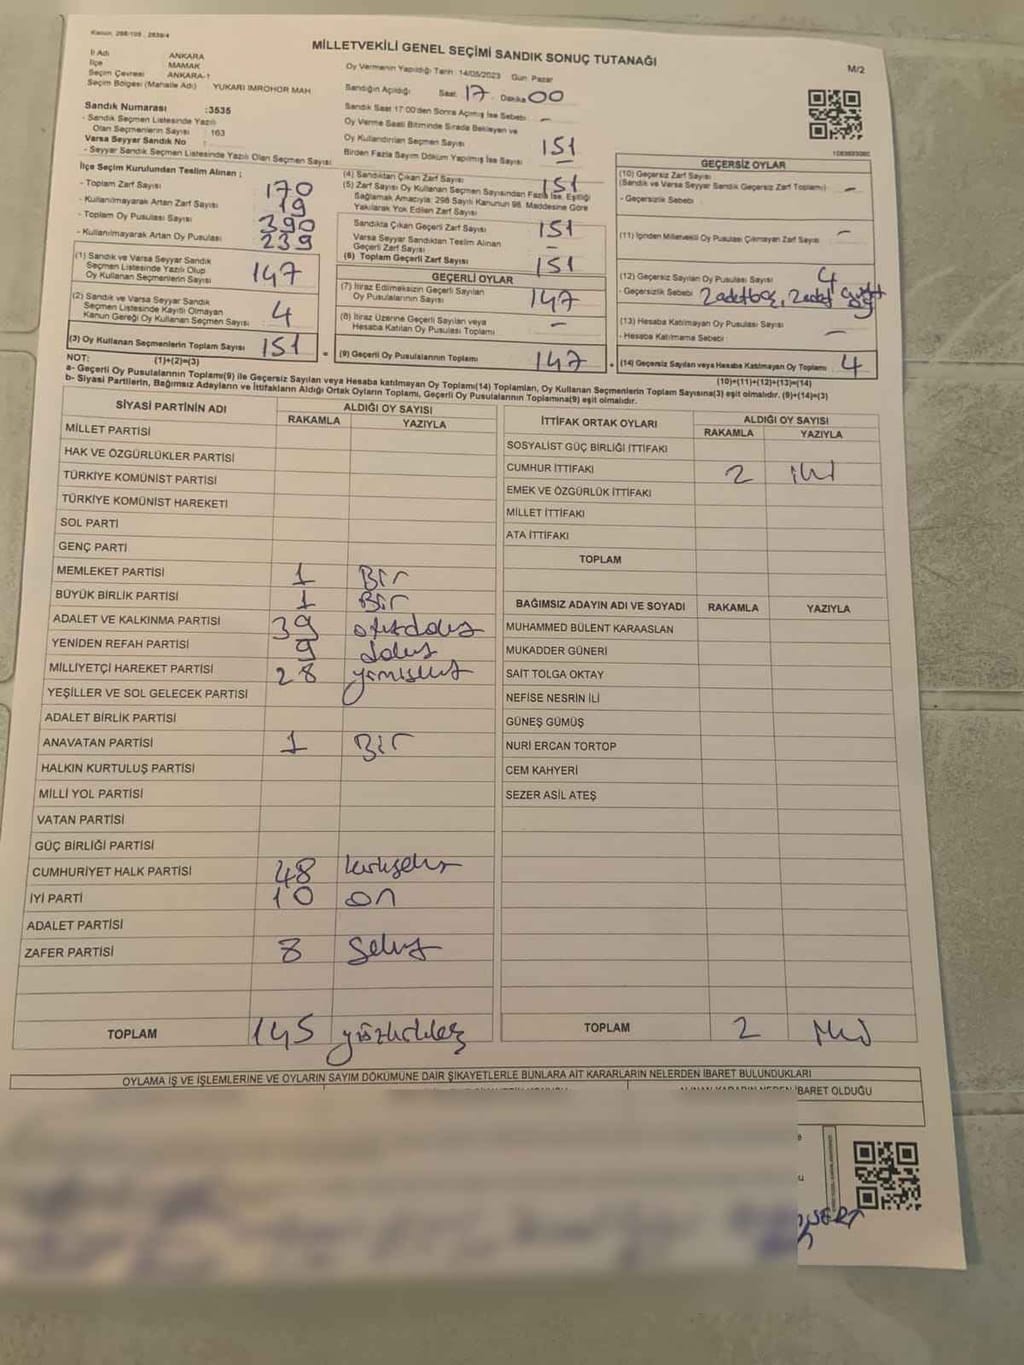 Kanun. 298/105 , 2839/4
MİLLETVEKİLİ GENEL SEÇİMİ SANDIK SONUÇ TUTANAĞI
M/2
İl Adı ANKARA
İlçe MAMAK
Seçim Çevresi ANKARA-1
Seçim Bölgesi (Mahalle Adı) YUKARI IMROHOR MAH
Oy Vermenin Yapıldığı Tarih :14/05/2023 Gün: Pazar
Sandığın Açıldığı Saat: 17. Dakika 00
Sandık Saat 17:00'den Sonra Açılmış İse Sebebi: -
Oy Verme Saati Bitiminde Sırada Bekleyen ve
Oy Kullandırılan Seçmen Sayısı 151
Birden Fazla Sayım Döküm Yapılmış İse Sayısı -
Sandık Numarası :3535
- Sandık Seçmen Listesinde Yazılı
Olan Seçmenlerin Sayısı : 163
Varsa Seyyar Sandık No :
- Seyyar Sandık Seçmen Listesinde Yazılı Olan Seçmen Sayısı
İlçe Seçim Kurulundan Teslim Alınan ;
- Toplam Zarf Sayısı 170
- Kullanılmayarak Artan Zarf Sayısı 19
- Toplam Oy Pusulası Sayısı 390
- Kullanılmayarak Artan Oy Pusulası 239
(1) Sandık ve Varsa Seyyar Sandık
Seçmen Listesinde Yazılı Olup
Oy Kullanan Seçmenlerin Sayısı 147
(2) Sandık ve Varsa Seyyar Sandık
Seçmen Listesinde Kayıtlı Olmayan
Kanun Gereği Oy Kullanan Seçmen Sayısı 4
(3) Oy Kullanan Seçmenlerin Toplam Sayısı 151
(4) Sandıktan Çıkan Zarf Sayısı 151
(5) Zarf Sayısı Oy Kullanan Seçmen Sayısından Fazla İse, Eşitliği
Sağlamak Amacıyla; 298 Sayılı Kanunun 98. Maddesine Göre
Yakılarak Yok Edilen Zarf Sayısı
Sandıkta Çıkan Geçerli Zarf Sayısı 151
Varsa Seyyar Sandıktan Teslim Alınan
Geçerli Zarf Sayısı -
(6) Toplam Geçerli Zarf Sayısı 151
GEÇERLİ OYLAR
(7) İtiraz Edilmeksizin Geçerli Sayılan
Oy Pusulalarının Sayısı 147
(8) İtiraz Üzerine Geçerli Sayılan veya
Hesaba Katılan Oy Pusulası Toplamı -
= (9) Geçerli Oy Pusulalarının Toplamı 147
GEÇERSİZ OYLAR
(10) Geçersiz Zarf Sayısı
(Sandık ve Varsa Seyyar Sandık Geçersiz Zarf Toplamı) -
- Geçersizlik Sebebi :
(11) İçinden Milletvekili Oy Pusulası Çıkmayan Zarf Sayısı -
(12) Geçersiz Sayılan Oy Pusulası Sayısı 4
- Geçersizlik Sebebi 2 adet boş, 2 adet
(13) Hesaba Katılmayan Oy Pusulası Sayısı -
- Hesaba Katılmama Sebebi :
+ (14) Geçersiz Sayılan veya Hesaba Katılmayan Oy Toplamı 4
NOT: (1)+(2)=(3)
(10)+(11)+(12)+(13)=(14)
a- Geçerli Oy Pusulalarının Toplamı(9) ile Geçersiz Sayılan veya Hesaba katılmayan Oy Toplamı(14) Toplamları, Oy Kullanan Seçmenlerin Toplam Sayısına(3) eşit olmalıdır. (9)+(14)=(3)
b- Siyasi Partilerin, Bağımsız Adayların ve İttifakların Aldığı Ortak Oyların Toplamı, Geçerli Oy Pusulalarının Toplamına(9) eşit olmalıdır.
SİYASİ PARTİNİN ADI ALDIĞI OY SAYISI
RAKAMLA YAZIYLA
MİLLET PARTİSİ
HAK VE ÖZGÜRLÜKLER PARTİSİ
TÜRKİYE KOMÜNİST PARTİSİ
TÜRKİYE KOMÜNİST HAREKETİ
SOL PARTİ
GENÇ PARTİ
MEMLEKET PARTİSİ 1 Bir
BÜYÜK BİRLİK PARTİSİ 1 Bir
ADALET VE KALKINMA PARTİSİ 39 otuzdokuz
YENİDEN REFAH PARTİSİ 9 dokuz
MİLLİYETÇİ HAREKET PARTİSİ 28 yirmisekiz
YEŞİLLER VE SOL GELECEK PARTİSİ
ADALET BİRLİK PARTİSİ
ANAVATAN PARTİSİ 1 Bir
HALKIN KURTULUŞ PARTİSİ
MİLLİ YOL PARTİSİ
VATAN PARTİSİ
GÜÇ BİRLİĞİ PARTİSİ
CUMHURİYET HALK PARTİSİ 48 kırksekiz
İYİ PARTİ 10 on
ADALET PARTİSİ
ZAFER PARTİSİ 8 Sekiz
TOPLAM 145 yüzkırkbeş
İTTİFAK ORTAK OYLARI ALDIĞI OY SAYISI
RAKAMLA YAZIYLA
SOSYALİST GÜÇ BİRLİĞİ İTTİFAKI
CUMHUR İTTİFAKI 2 iki
EMEK VE ÖZGÜRLÜK İTTİFAKI
MİLLET İTTİFAKI
ATA İTTİFAKI
TOPLAM
BAĞIMSIZ ADAYIN ADI VE SOYADI RAKAMLA YAZIYLA
MUHAMMED BÜLENT KARAASLAN
MUKADDER GÜNERİ
SAİT TOLGA OKTAY
NEFİSE NESRİN İLİ
GÜNEŞ GÜMÜŞ
NURİ ERCAN TORTOP
CEM KAHYERİ
SEZER ASİL ATEŞ
TOPLAM 2 iki
OYLAMA İŞ VE İŞLEMLERİNE VE OYLARIN SAYIM DÖKÜMÜNE DAİR ŞİKAYETLERLE BUNLARA AİT KARARLARIN NELERDEN İBARET BULUNDUKLARI
ALINAN KARARIN NEDEN İBARET OLDUĞU